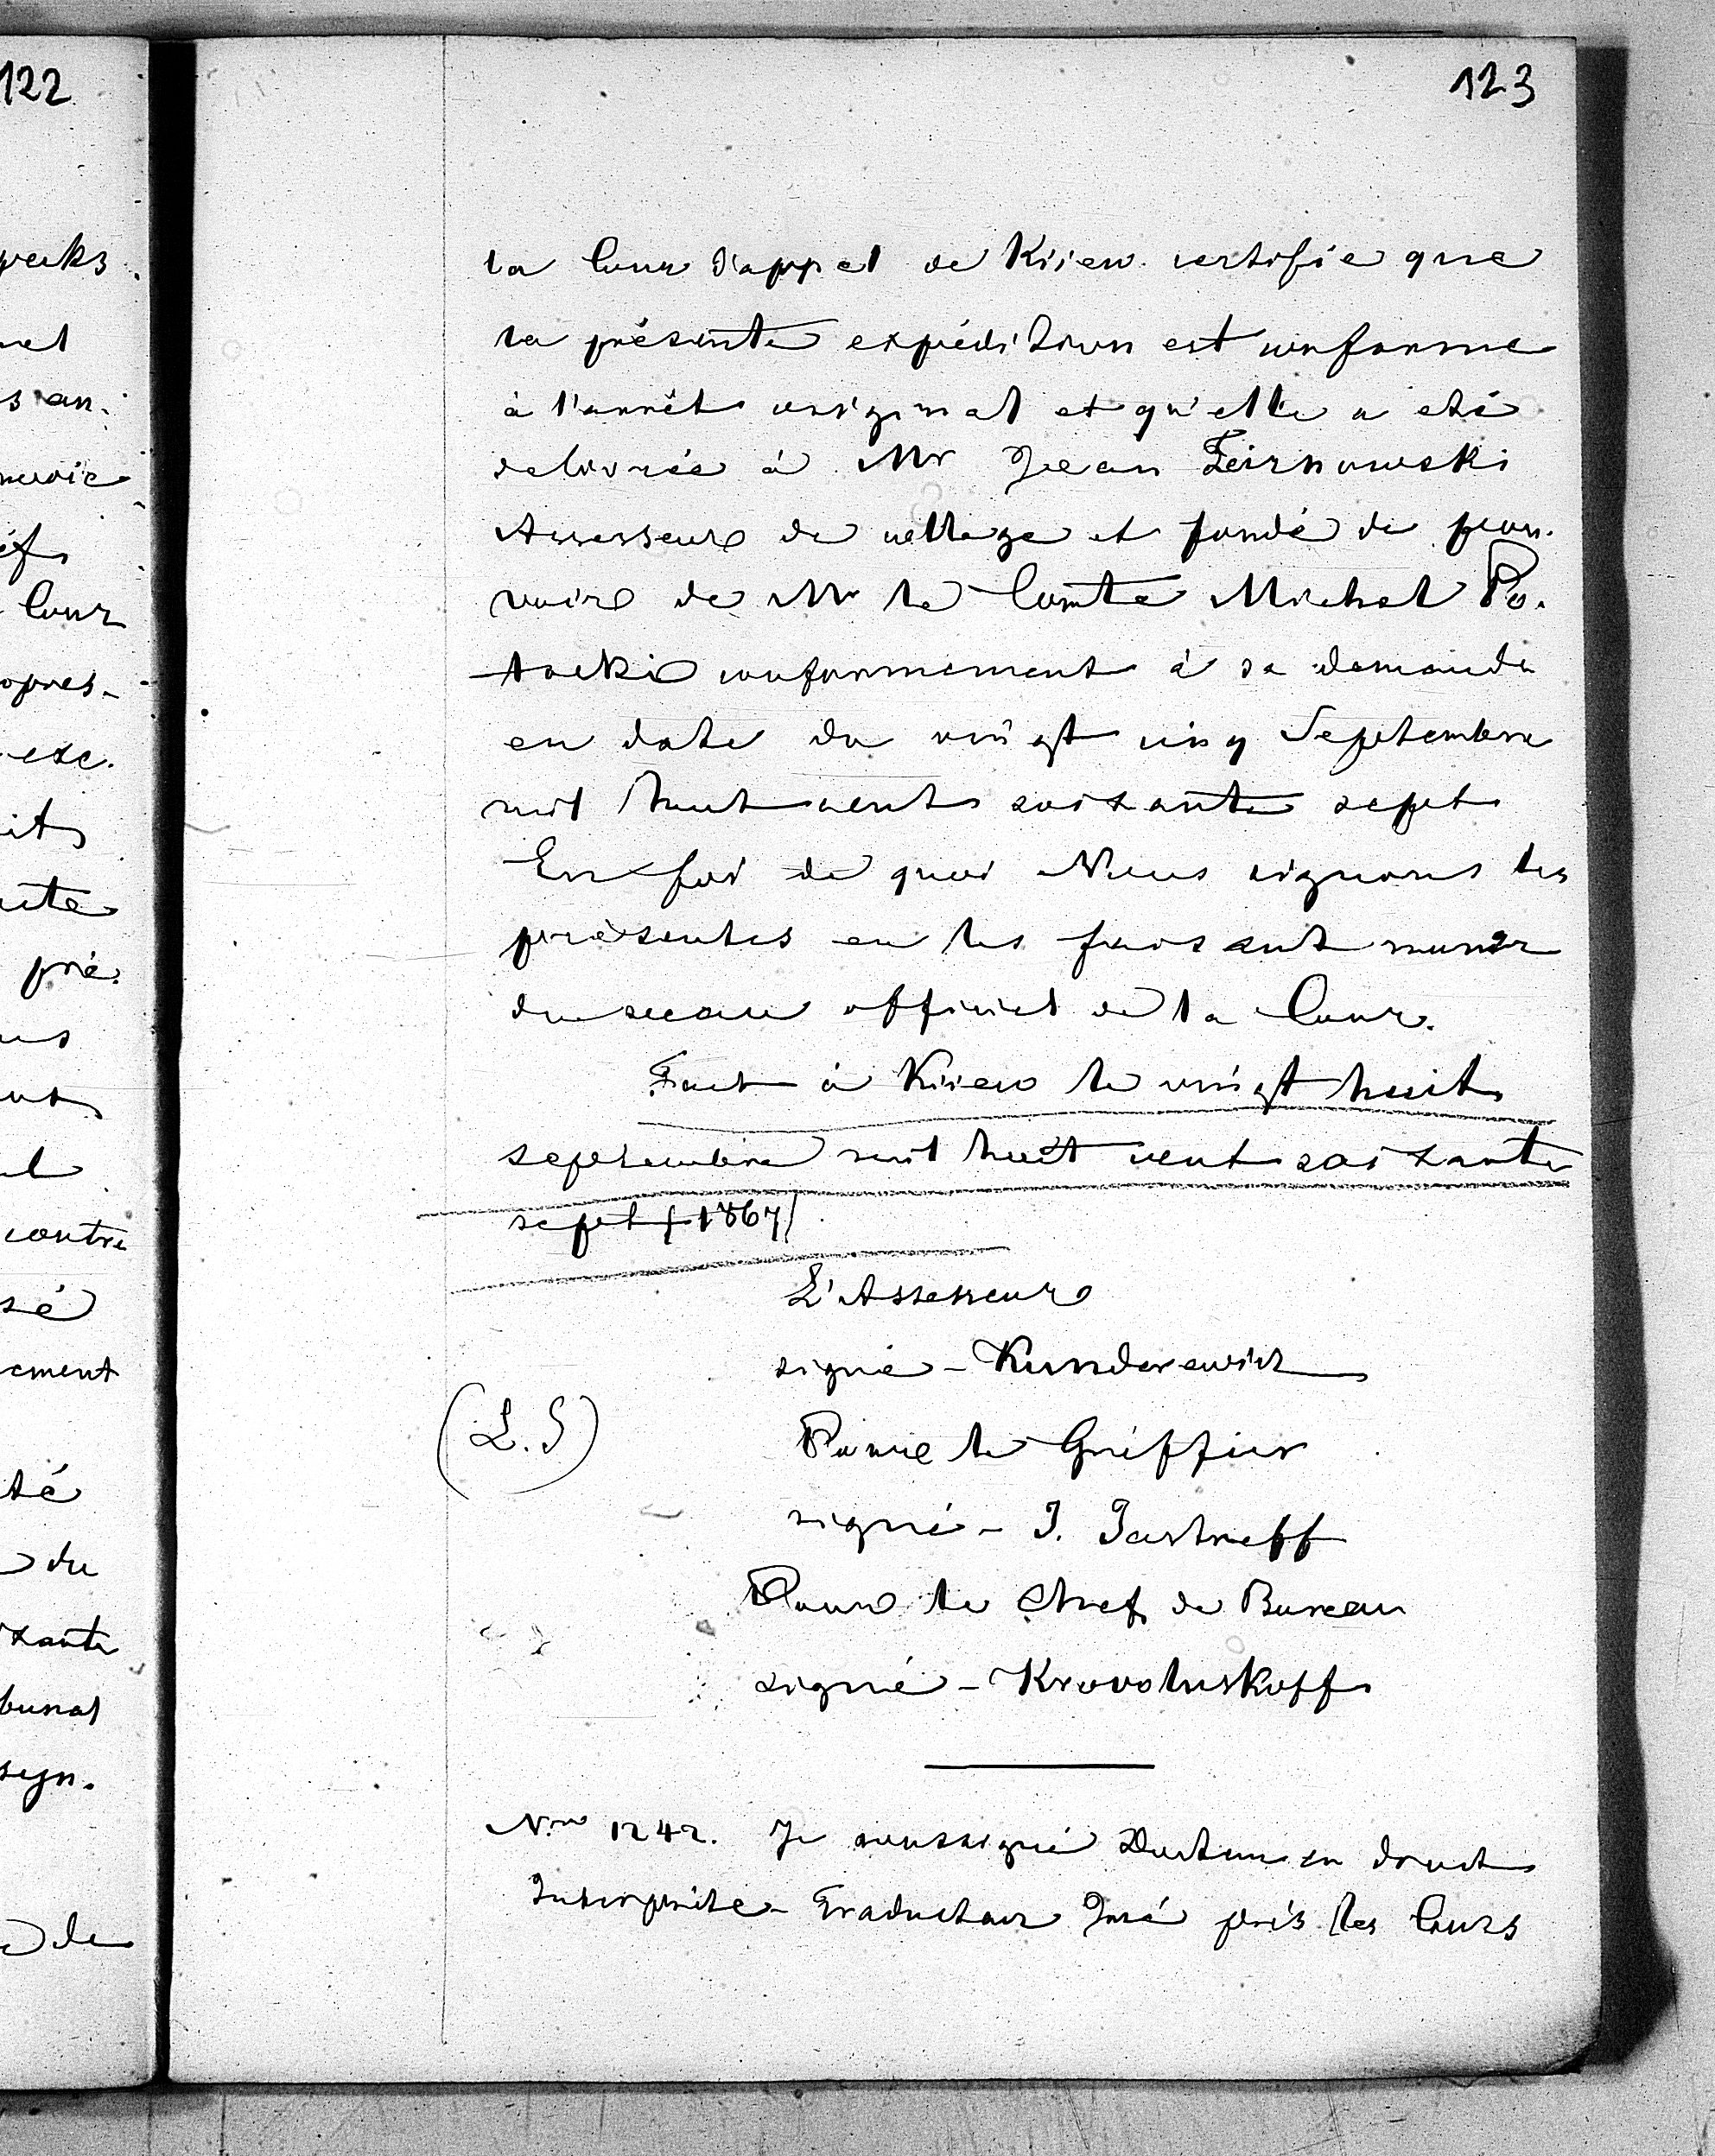 122
123
la Cour d'appel de Kiiew certifie que
la présente expédition est conforme
à l'arrêt original et qu'elle a été
delivrée à Mr Jean Zeirnowski
Assesseur de collège et fondé de pou-
voirs de Mr le Comte Michel Po-
tocki conformement à sa demande
en date du vingt cinq Septembre
mil huit cent soixante sept
En foi de quoi Nous signons les
présentes en les faisant munir
du sceau officiel de la Cour.
Fait à Kiiew le vingt huit
septembre mil huit cent soixante
sept (1867)
L'Assesseur
signé - Kunderewicz
(L.S)
Pour le Greffier
signé - J. Jastreff
Pour le Chef de Bureau
signé - Krovoluskoff
Nro 1242. Je soussigné Docteur en droit
Interprète-Traducteur Juré près les Cours
Cour
contre
de